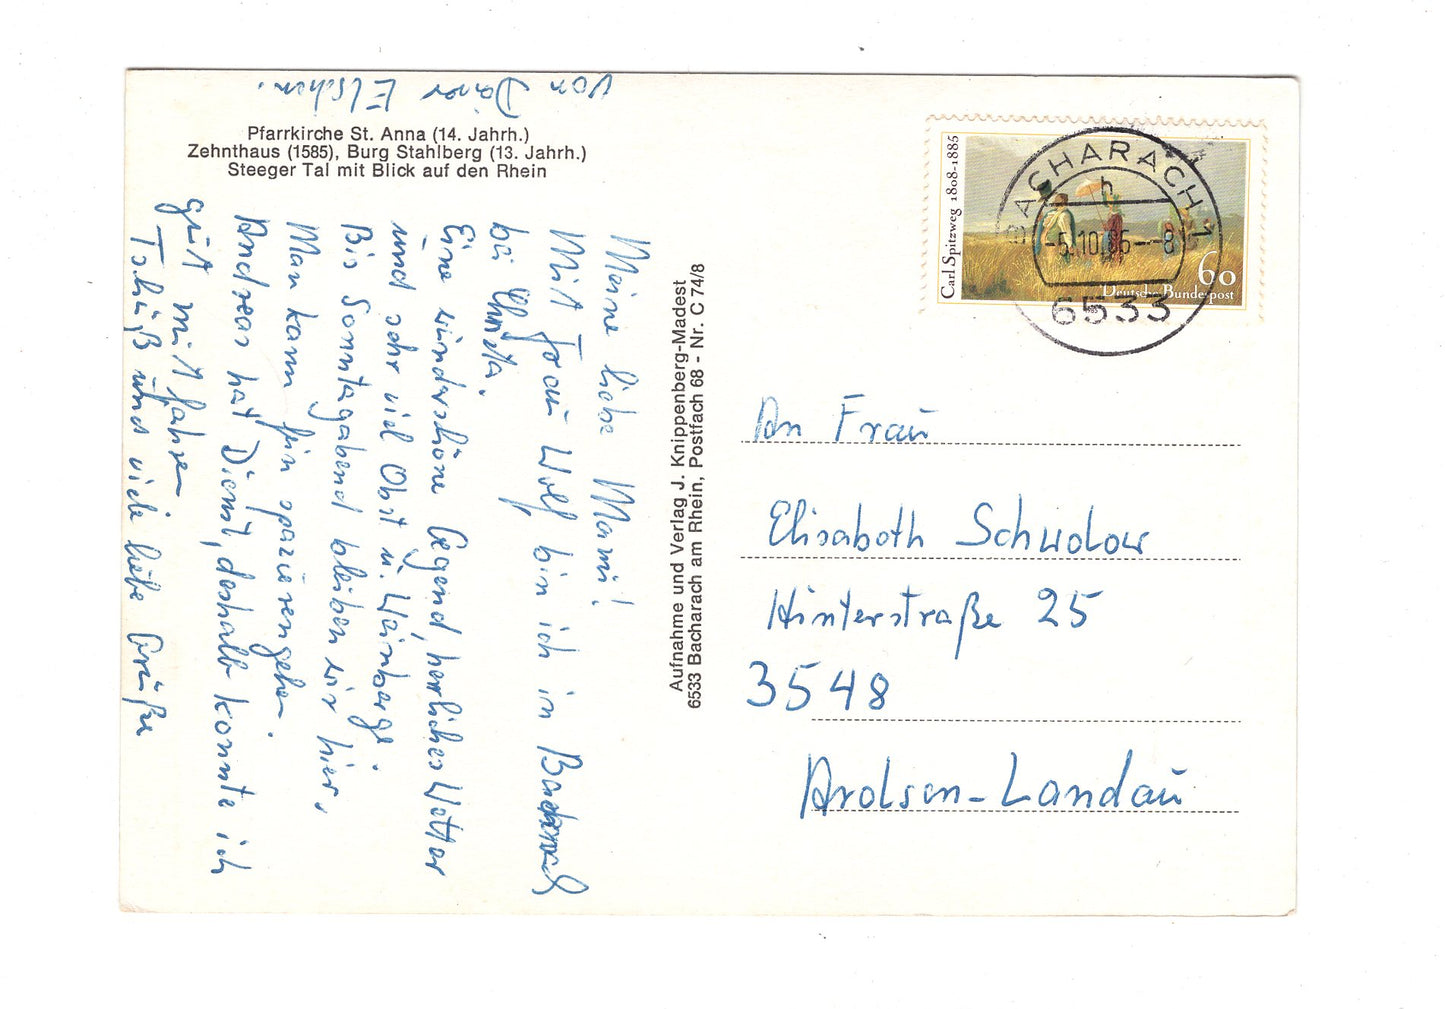 Pfarrkirche St. Anna (14. Jahrh.)
Zehnthaus (1585), Burg Stahlberg (13. Jahrh.)
Steeger Tal mit Blick auf den Rhein
Meine liebe Mami!
Mit Frau Wolf bin ich in Bacharach
bei Christa.
Eine wunderschöne Gegend, herrliches Wetter
und sehr viel Obst u. Weinberge.
Bis Sonntagabend bleiben wir hier,
Man kann fein spazierengehen.
Andreas hat Dienst, deshalb konnte ich
gut mitfahren
Tschüß und viele liebe Grüße
von Deiner Elschen.
Aufnahme und Verlag J. Knippenberg-Madest
6533 Bacharach am Rhein, Postfach 68 - Nr. C 74/8
Carl Spitzweg 1808-1885
60
Deutsche Bundespost
BACHARACH 1
h
-5.10.85--8
6533
An Frau
Elisabeth Schwolow
Hinterstraße 25
3548
Arolsen-Landau